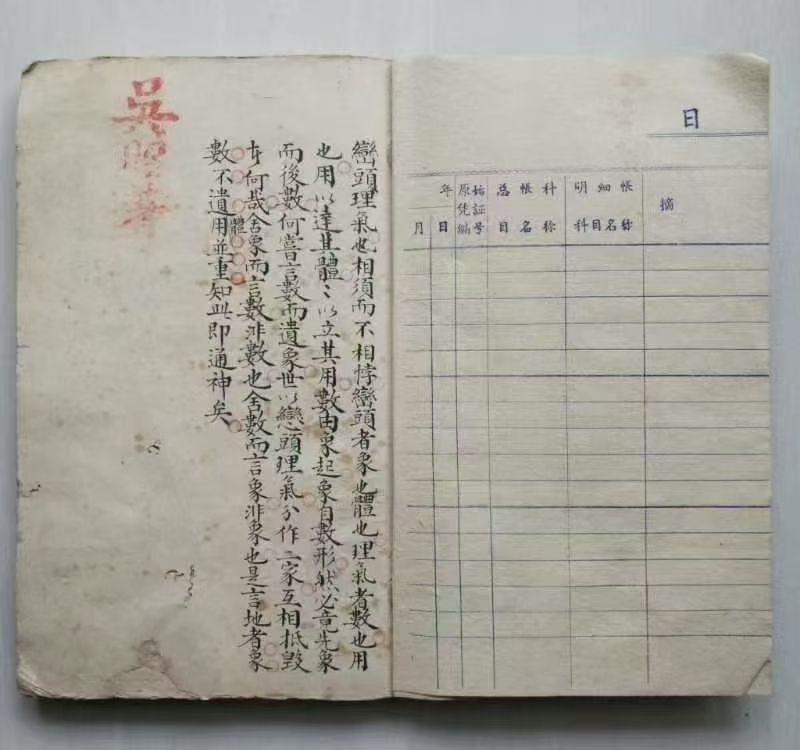 巒頭理氣也相須而不相悖巒頭者象也體也理氣者數也用
也用以達其體〻以立其用數由象起象自數形然必竟先象
而後數何嘗言數而遺象世以戀頭理氣分作二家互相抵毀
何哉舍象而言數非數也舍數而言象非象也是言地者象
數不遺體用並重知此即通神矣
吳
日
年
月 日
原始凭証編号
总帳科目名称
明細帳科目名称
摘